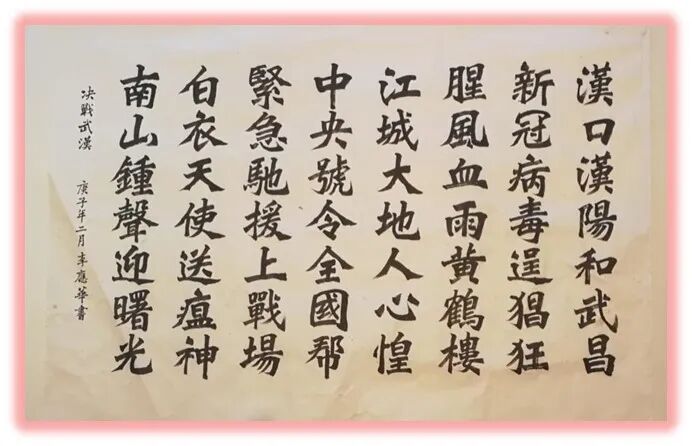 漢口漢陽和武昌
新冠病毒逞猖狂
腥風血雨黄鶴樓
江城大地人心惶
中央號令全國帮
緊急馳援上戰場
白衣天使送瘟神
南山鍾聲迎曙光
决戰武漢 庚子年二月李應華書